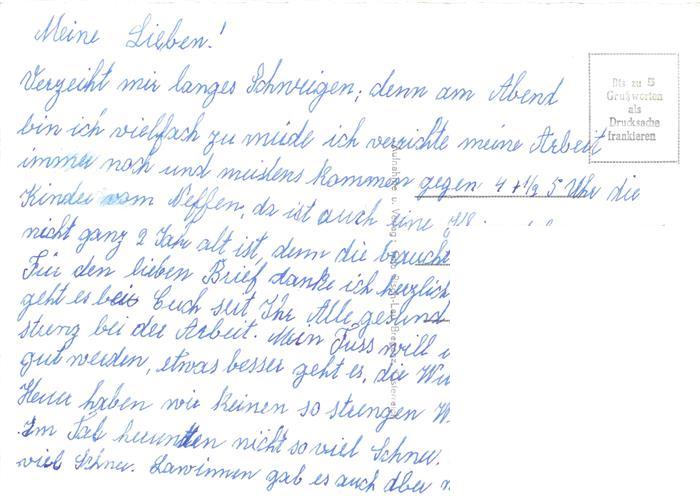 Meine Lieben!
Verzeiht mir langes Schweigen; denn am Abend
bin ich vielfach zu müde ich verrichte meine Arbeit
immer noch und meistens kommen gegen 4 + 1/2 5 Uhr die
Kinder vom Neffen, da ist auch eine
nicht ganz 2 Jahr alt ist, denn die braucht
Für den lieben Brief danke ich herzlich
geht es bei Euch seit Ihr Alle gesund
streng bei der Arbeit. Mein Fuss will
gut werden, etwas besser geht es, die
Heuer haben wir keinen so strengen
Im Tal herunten nicht so viel Schnee.
viel Schnee. Lawinnen gab es auch aber
Bis zu 5
Grußworten
als
Drucksache
frankieren